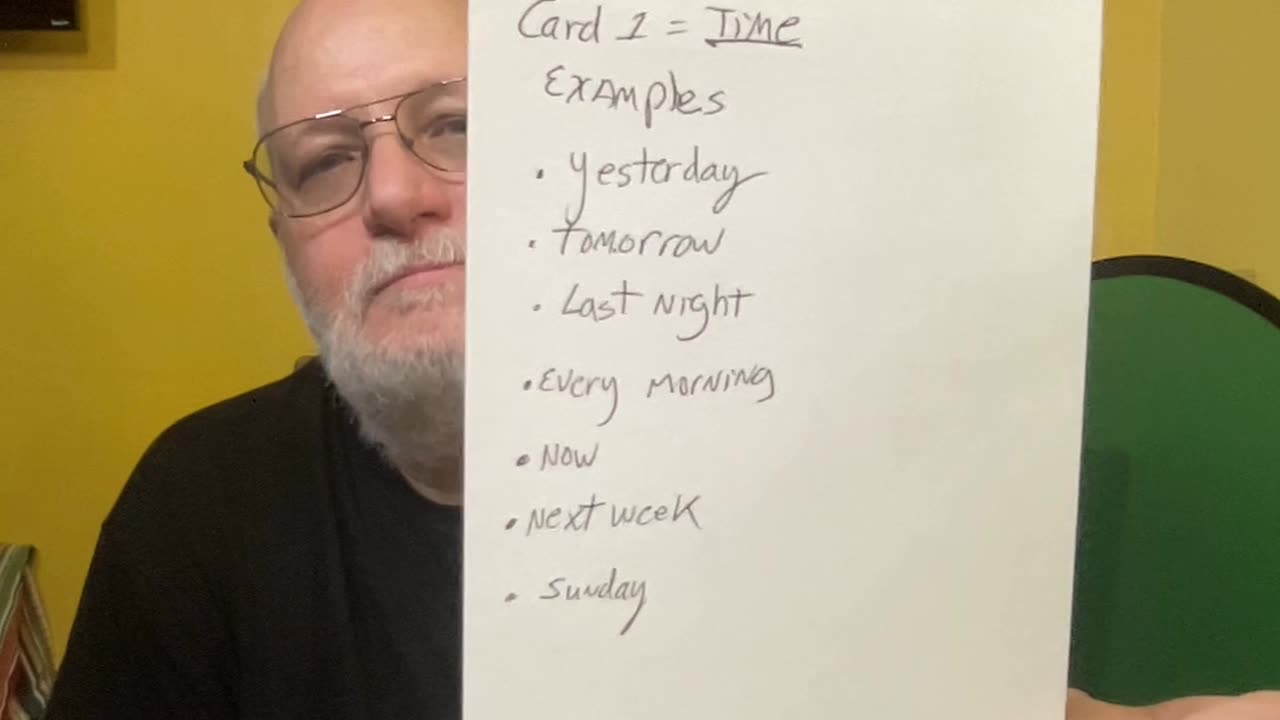 Card 1 = Time
Examples
• Yesterday
• Tomorrow
• Last Night
• Every Morning
• Now
• Next week
• Sunday